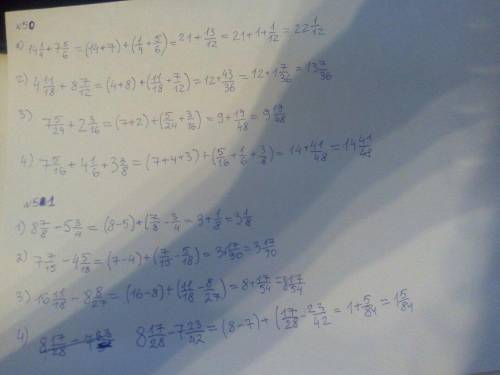 №50
1) 14 1/4 + 7 5/6 = (14+7) + (1/4 + 5/6) = 21 + 13/12 = 21+1+ 1/12 = 22 1/12
2) 4 11/18 + 8 7/12 = (4+8) + (11/18 + 7/12) = 12 + 43/36 = 12+1 7/36 = 13 7/36
3) 7 5/24 + 2 3/16 = (7+2) + (5/24 + 3/16) = 9 + 19/48 = 9 19/48
4) 7 5/16 + 4 1/6 + 3 3/8 = (7+4+3) + (5/16 + 1/6 + 3/8) = 14 + 41/48 = 14 41/48
№51
1) 8 7/8 - 5 3/4 = (8-5) + (7/8 - 3/4) = 3 + 1/8 = 3 1/8
2) 7 7/15 - 4 5/18 = (7-4) + (7/15 - 5/18) = 3 + 17/90 = 3 17/90
3) 16 11/18 - 8 8/27 = (16-8) + (11/18 - 8/27) = 8 + 17/54 = 8 17/54
4) 8 17/28 - 7 23/42 = (8-7) + (17/28 - 23/42 = 1 + 5/84 = 1 5/84